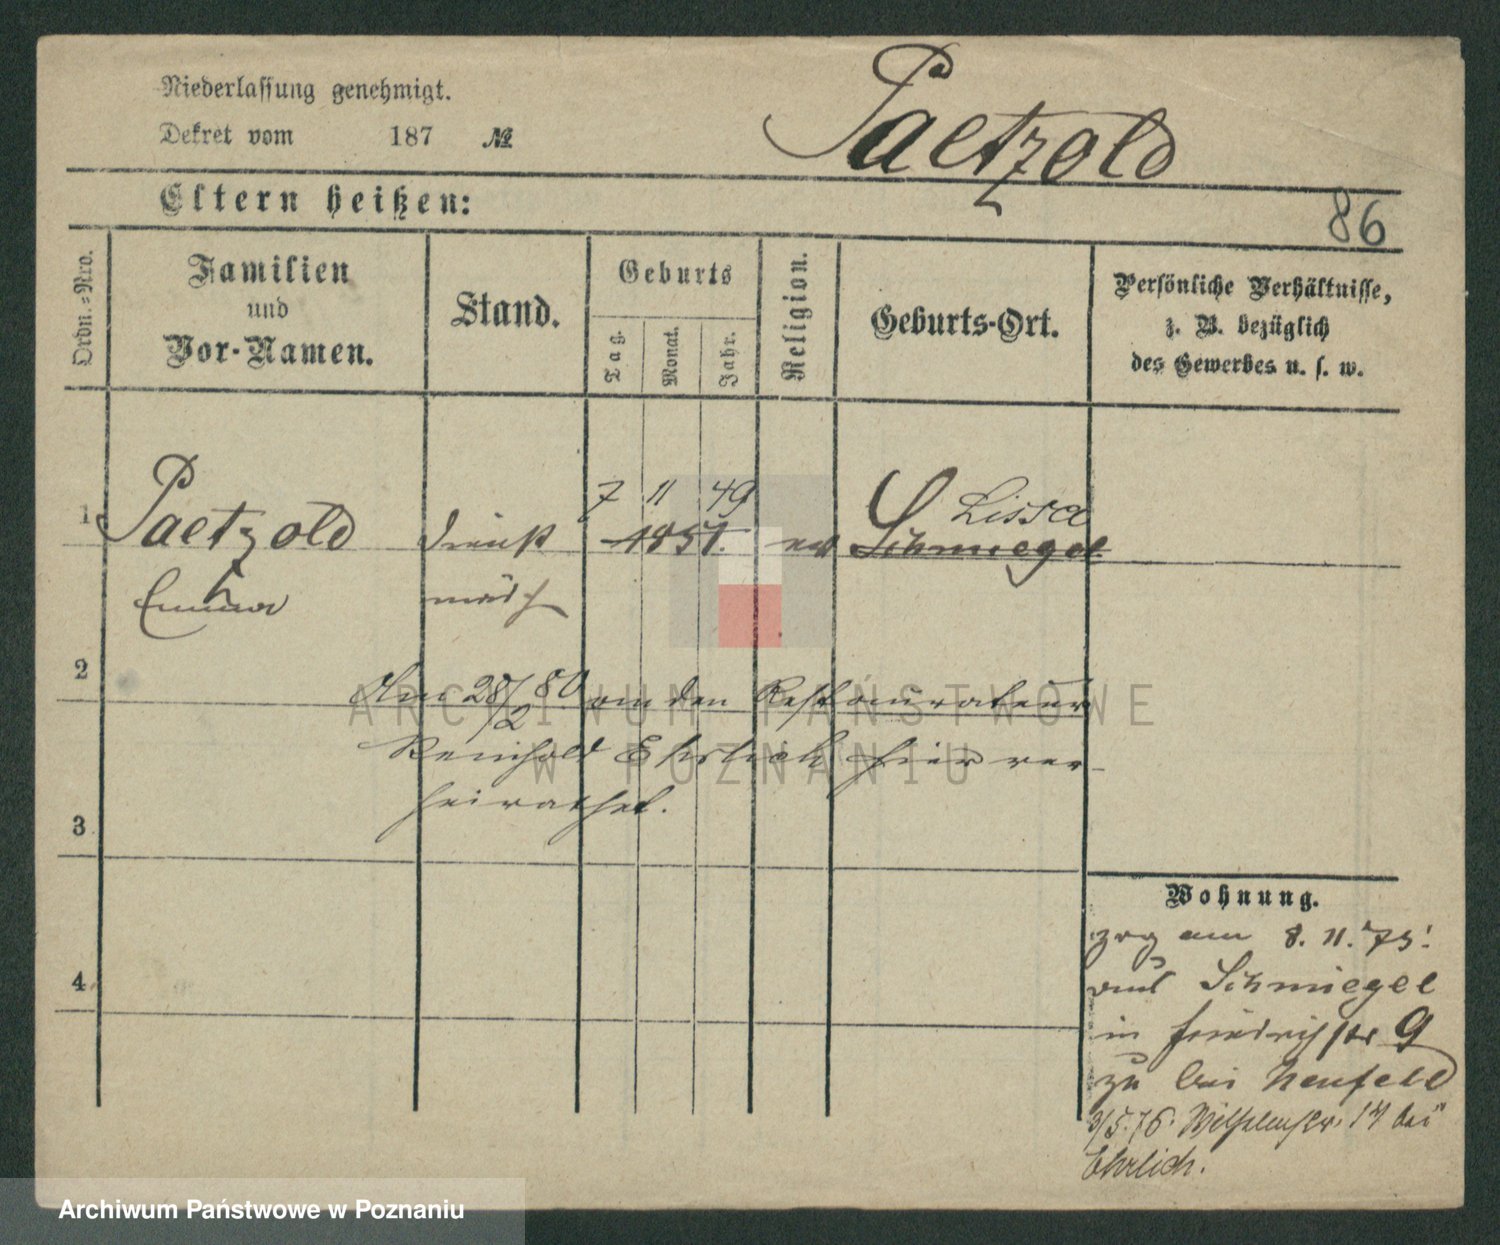 Niederlassung genehmigt.
Dekret vom 187 №
Paetzold
Eltern heißen:
86
Ordn.=Nro.
Familien
und
Vor-Namen.
Stand.
Geburts
Tag.
Monat.
Jahr.
Religion.
Geburts-Ort.
Persönliche Verhältnisse,
z. B. bezüglich
des Gewerbes u. s. w.
7 11 49 Lissa
1 Paetzold Dienst 1851. ev Schmiegel
Emma mädch
2
Am 28/2 80 an den Restaurateur
Reinhold Ehrlich hier ver-
heirathet.
3
4
Wohnung.
zog am 8. 11. 75.
aus Schmiegel
in Friedrichstr 9
zu bei Neufeld
3/5. 76. Wilhelmstr. 17 bei
Ehrlich.
ARCHIWUM PAŃSTWOWE
W POZNANIU
Archiwum Państwowe w Poznaniu